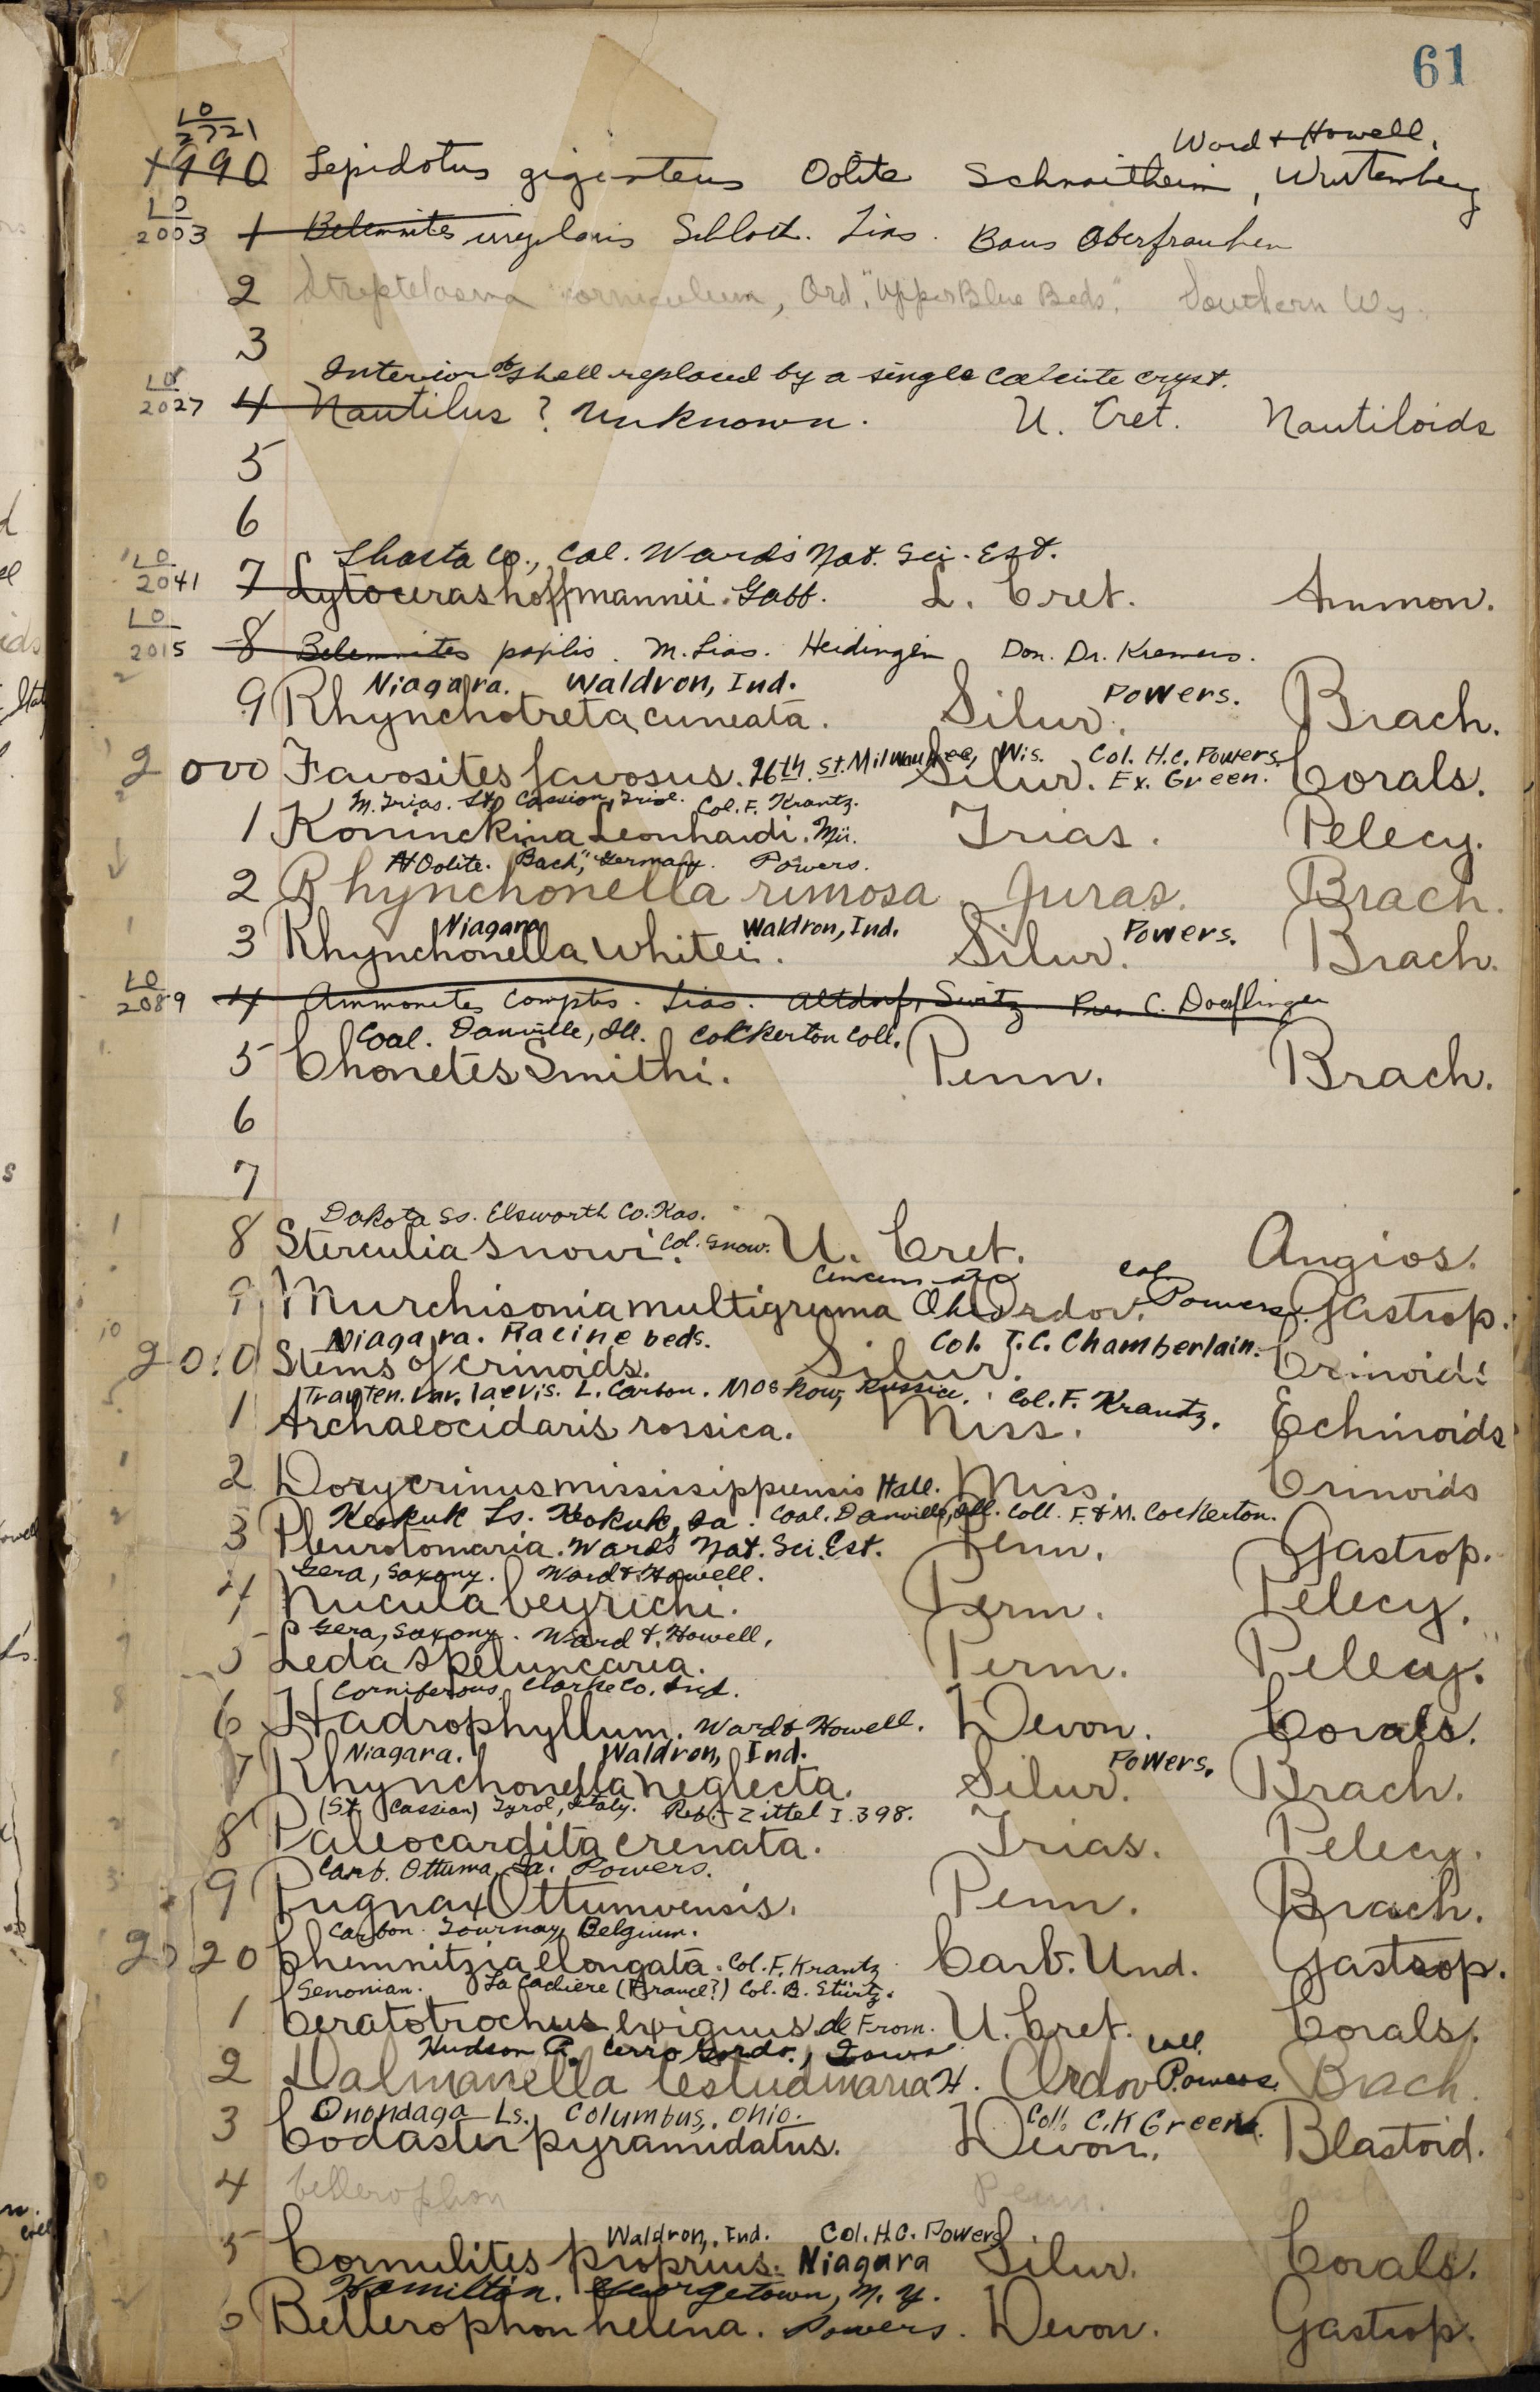 61
LO
2721
Ward & Howell.
1990 Lepidotus giganteus Oolite Schnaitheim, Wurtemberg
LO
2003 1 Belemnites irregularis Schlot. Lias. Banz Oberfranken
2 Streptelasma corniculum, Ord. "Upper Blue Beds." Southern
3
Interior of shell replaced by a single calcite cryst.
LO
2027 4 Nautilus? Unknown. U. Cret. Nautiloids
5
6
Shasta Co., Cal. Ward's Nat. Sci. Est.
LO
2041 7 Lytoceras hoffmannii. Gabb. L. Cret. Ammon.
LO
2015 8 Belemnites M. Lias. Don. Dr. Kremers.
Niagara. Waldron, Ind. Powers.
9 Rhynchotreta cuneata. Silur. Brach.
26th St. Milwaukee, Wis. Col. H.C. Powers
2000 Favosites favosus. Silur. Ex. Green. Corals.
M. Trias. St. Cassian, Col. F. Krantz.
1 Koninckina Leonhardi. Mü. Trias. Pelecy.
Oolite. "Bach," Germany. Powers.
2 Rhynchonella rimosa. Juras. Brach.
Niagara Waldron, Ind. Powers.
3 Rhynchonella Whitei. Silur. Brach.
LO
2089 4 Ammonites comptus. Lias. Altdorf, Switz. Pres. C. Doerflinger
Coal. Danville, Ill. Cockerton Coll.
5 Chonetes Smithi. Penn. Brach.
6
7
Dakota Ss. Elsworth Co. Kas.
8 Sterculia snowi. Col. Snow. U. Cret. Angios.
Col.
9 Murchisonia multigruma Ohio Ordov. Powers. Gastrop.
Niagara. Racine beds. Col. T.C. Chamberlain.
2010 Stems of crinoids. Silur. Crinoids
Trauten. var. laevis. L. Carbon. Moskow, Russia. Col. F. Krantz.
1 Archaeocidaris rossica. Miss. Echinoids
2 Dorycrinus mississippiensis Hall. Miss. Crinoids
Keokuk Ls. Keokuk, Ia. Coal. Danville, Ill. Coll. F. & M. Cockerton.
3 Pleurotomaria. Ward's Nat. Sci. Est. Penn. Gastrop.
Gera, Saxony. Ward & Howell.
4 Nucula beyrichi. Perm. Pelecy.
Gera, Saxony. Ward & Howell,
5 Leda speluncaria. Perm. Pelecy.
Corniferous Clarke Co. Ind.
6 Hadrophyllum. Ward & Howell. Devon. Corals.
Niagara. Waldron, Ind. Powers.
7 Rhynchonella neglecta. Silur. Brach.
(St. Cassian) Tyrol, Italy. Ref. - Zittel I. 398.
8 Paleocardita crenata. Trias. Pelecy.
Carb. Ottumwa, Ia. Powers.
9 Pugnax Ottumwensis. Penn. Brach.
Carbon. Tournay, Belgium.
2020 Chemnitzia elongata. Col. F. Krantz Carb. Und. Gastrop.
Senonian. La Cadiere (France?) Col. B. Stürtz.
1 Ceratotrochus exiguus. de From. U. Cret. Corals.
Hudson R. Cerro Gordo, Iowa Coll.
2 Dalmanella testudinaria H. Ordov Powers. Brach.
Onondaga Ls. Columbus, Ohio. Coll. C.K Greene.
3 Codaster pyramidatus. Devon. Blastoid.
4 Bellerophon Penn.
Waldron, Ind. Col. H.C. Powers
5 Cornulites proprius. Niagara Silur. Corals.
Hamilton. Georgetown, N.Y.
6 Bellerophon helena. Powers. Devon. Gastrop.